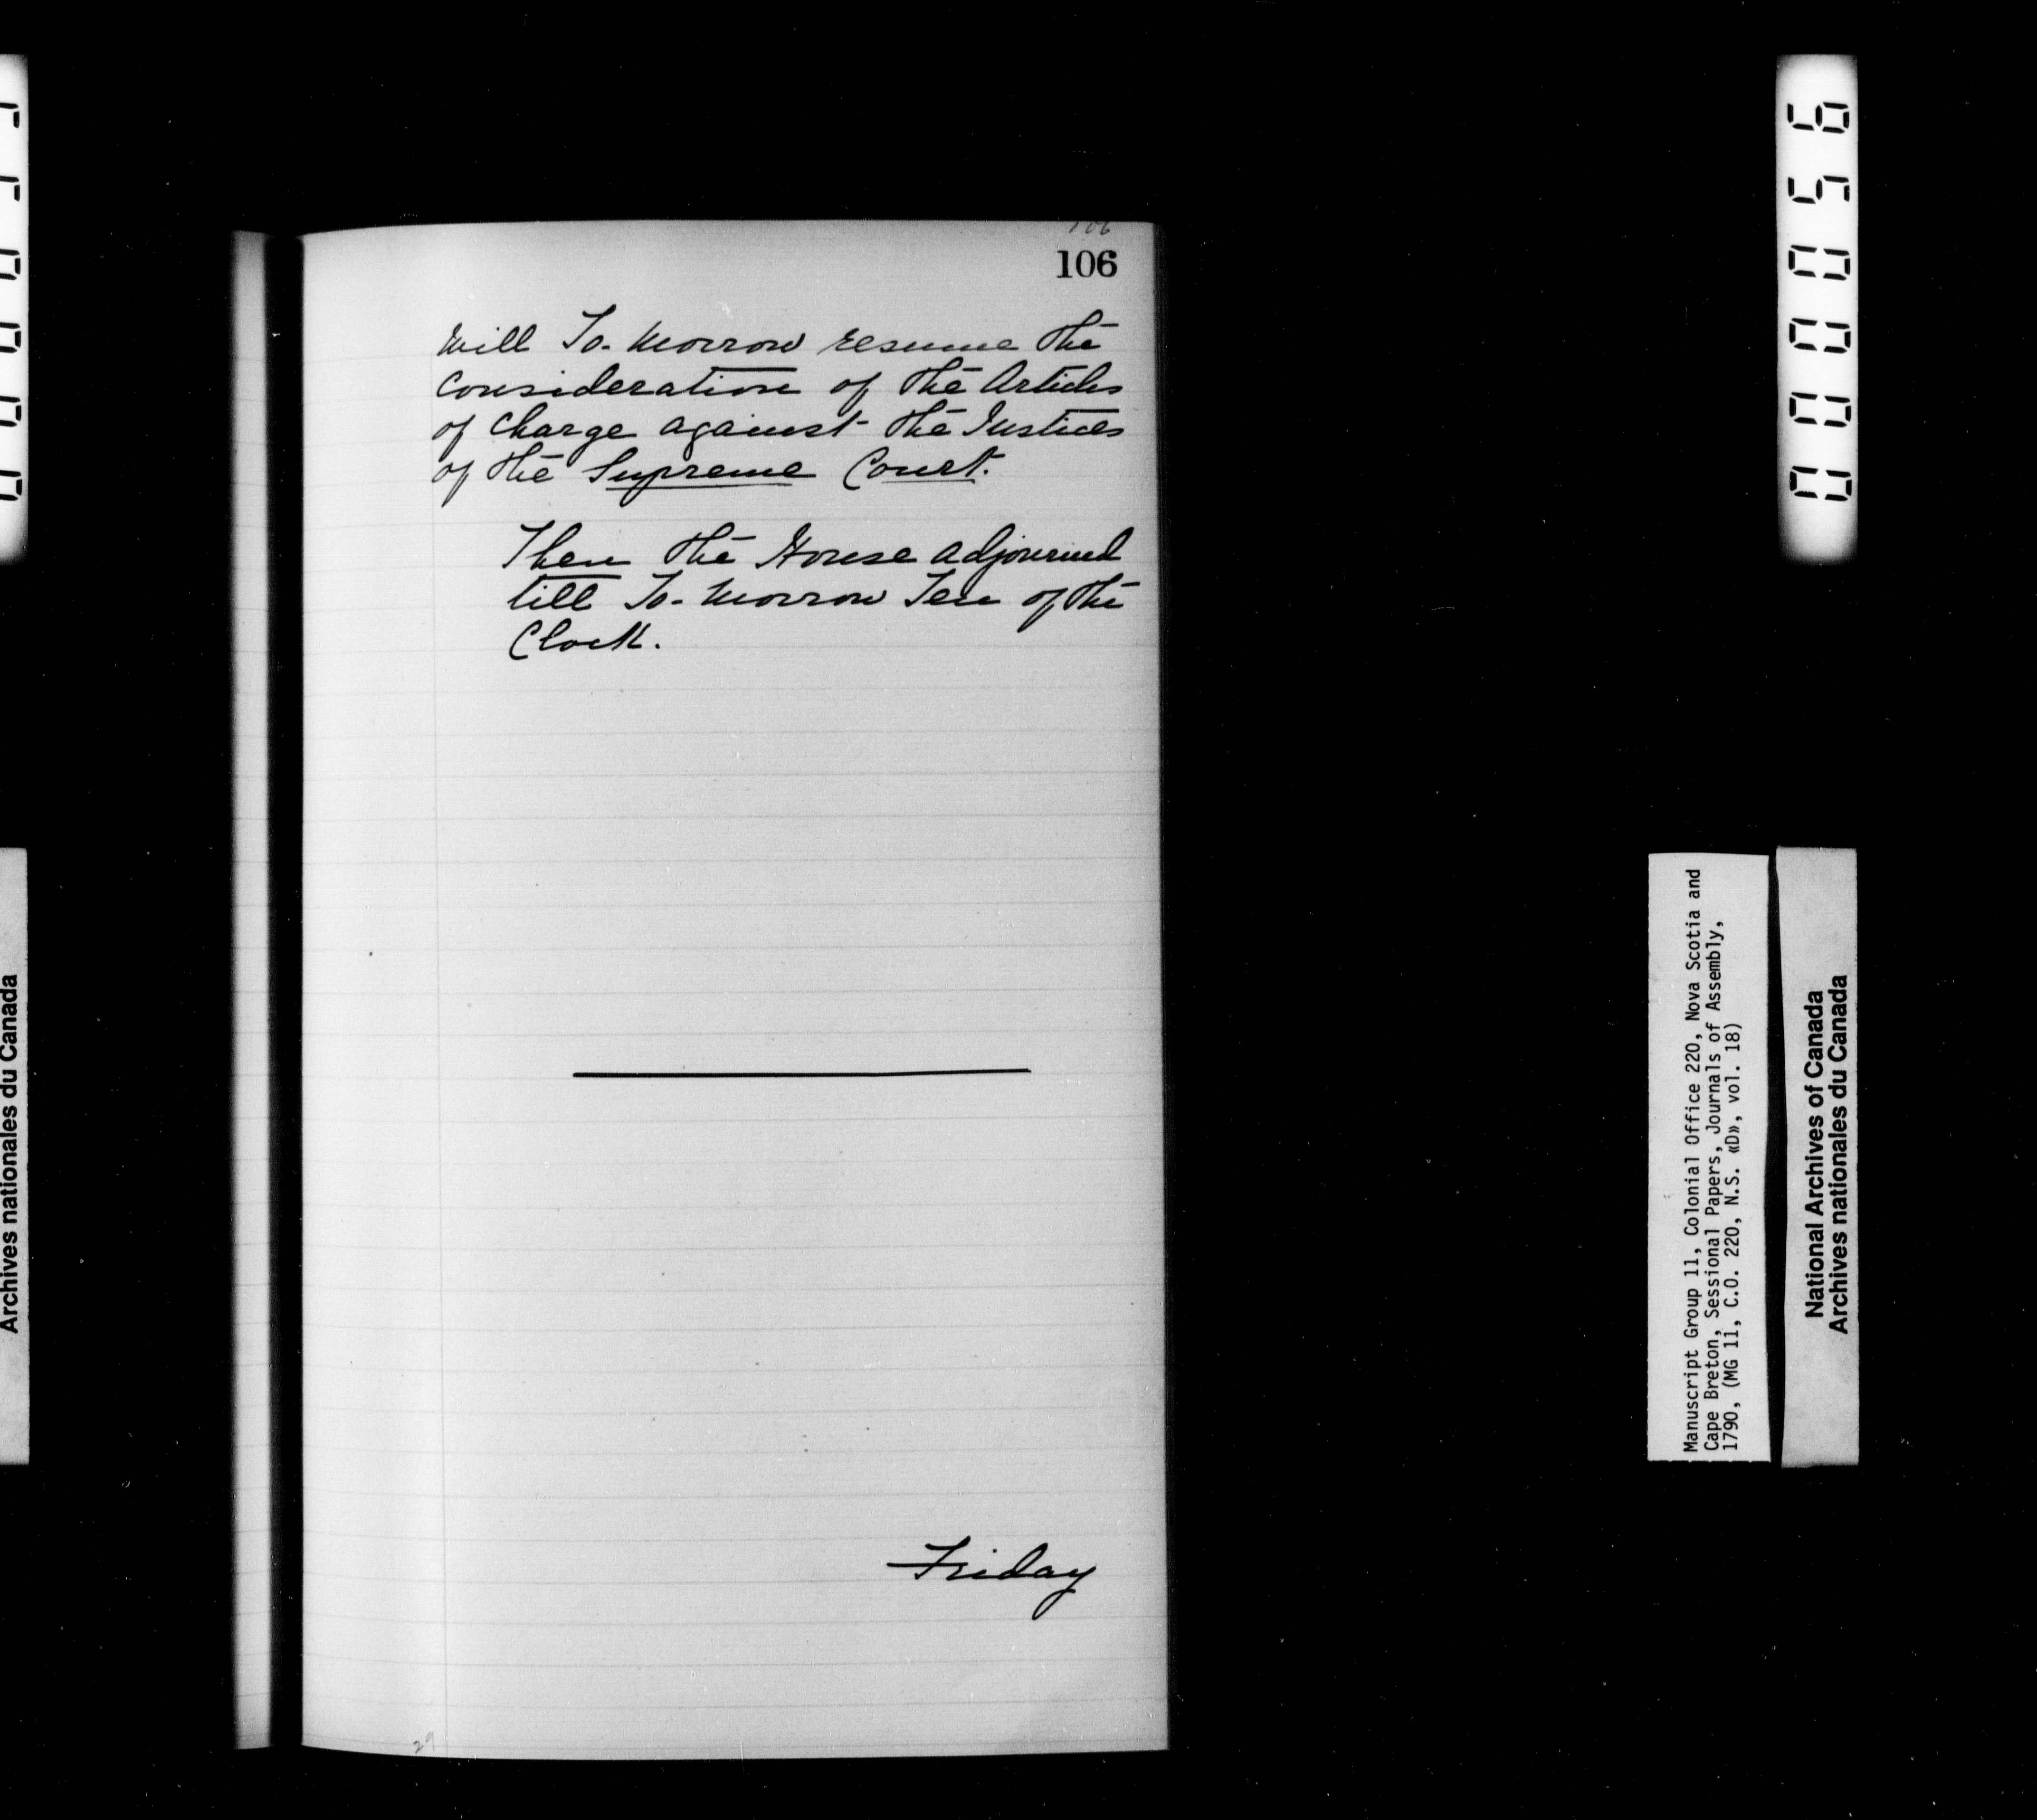 106
106
will To-Morrow resume the
consideration of the Articles
of Charge against the Justices
of the Supreme Court.
Then the House adjourned
till To-Morrow Ten of the
Clock.
Friday
29
000056
Manuscript Group 11, Colonial Office 220, Nova Scotia and
Cape Breton, Sessional Papers, Journals of Assembly,
1790, (MG 11, C.O. 220, N.S. «D», vol. 18)
National Archives of Canada
Archives nationales du Canada
Archives nationales du Canada